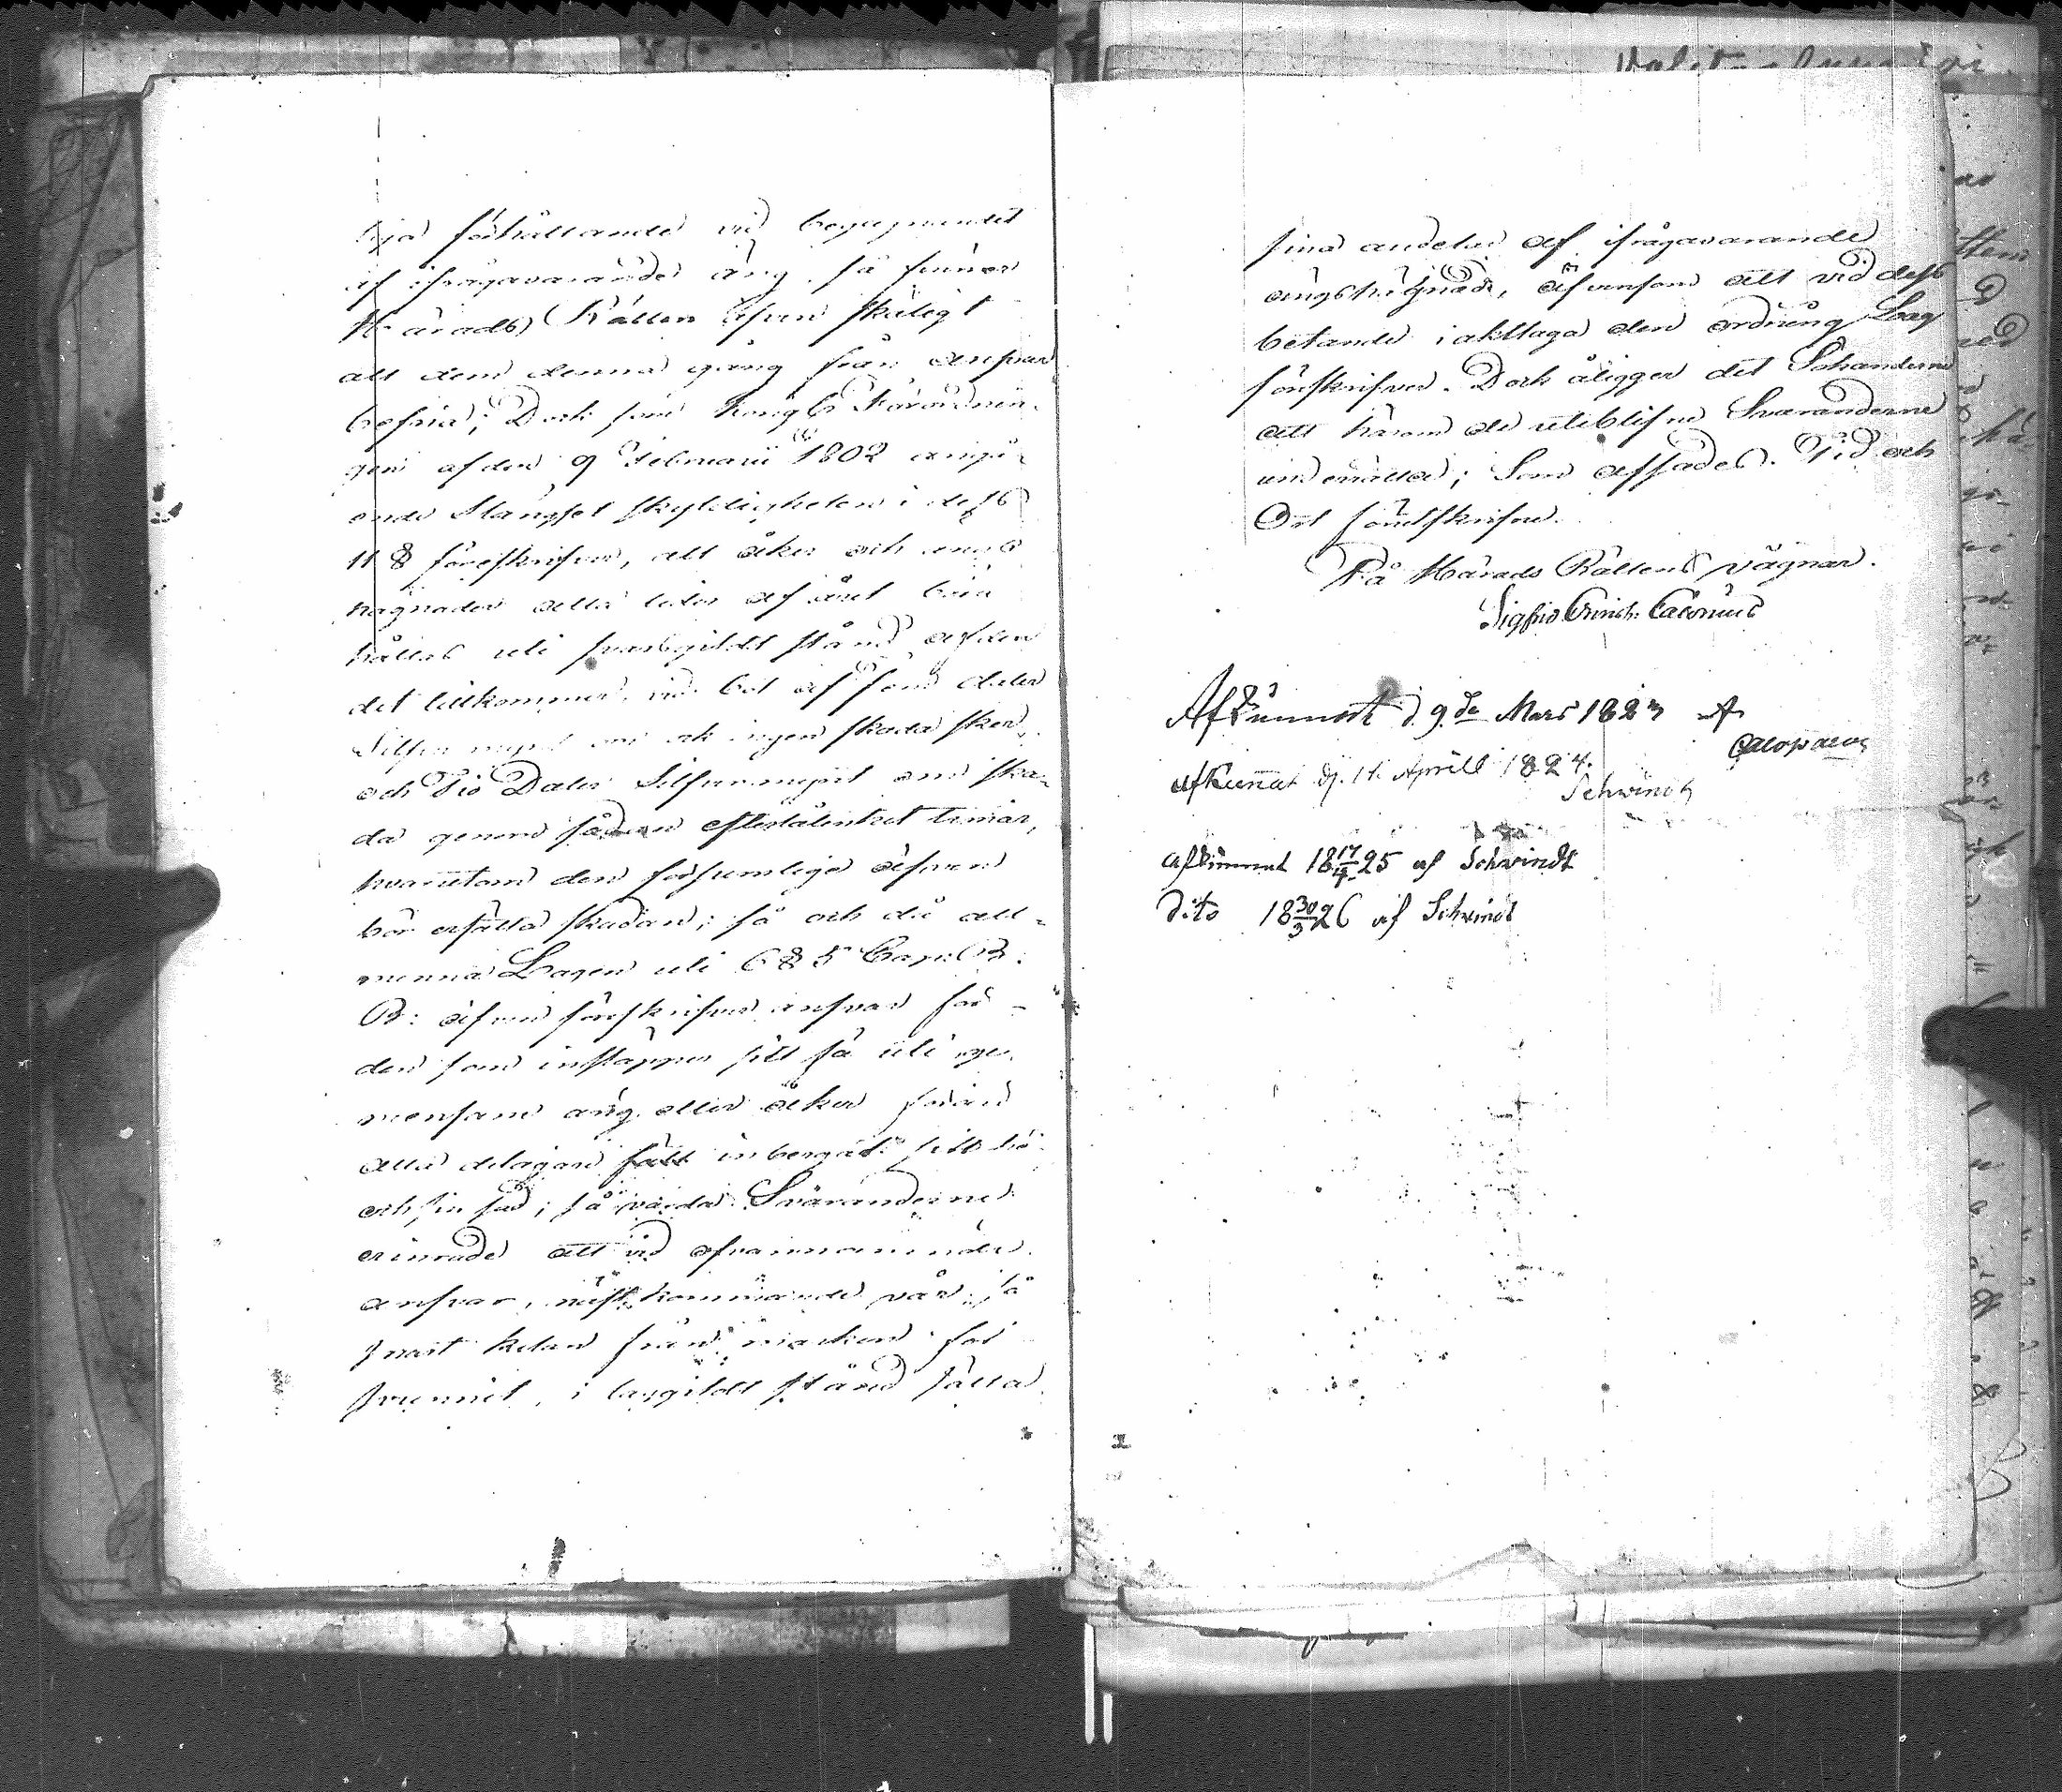 liga förhållande vid begagnandet
af ifrågavarande äng, så finner
Härads Rätten äfven skäligt
att dem denna gång från answar
befria; Dock som Kongl. Förordnin-
gen af den 9 Februarii 1802 angå-
ende Stängsel skyldigheten i dess
11 § föreskrifver, att åker och ängs
hägnader alla tider af året böra
hållas uti svarsgildt stånd af den
det tillkommer, vid bot af fem daler
Silfvermynt om ock ingen skada sker,
och Tio Daler Silfvermynt om ska-
da genom sådan efterlåtenhet timar,
hvarutom den försumlige äfven
bör ersätta skadan; så och då all-
männa Lagen uti 6 § 5 Cap: B:
B: äfven föreskrifver ansvar för
den som insläpper sitt fä uti ge-
mensam äng eller åker förän
alla delägare fått inbergat sitt hö
och sin säd; så varda Svaranderne
erinrade att vid ofvannämnde
ansvar, nästkommande vår, så
snart kälan från marken för
svunnit, i laggildt stånd sätta
sina andelar af ifrågavarande
ängshägnad, äfvensom att vid dess
betande iakttaga den ordning Lag
förskrifver. Dock åligger det Käranderne
att härom de uteblifne Svaranderne
underrätta; Som afsades. Tid och
Ort förutskrifne.
På Härads Rättens vägnar.
Sigfrid Erich: Calonius
Afkunnat d. 9.de Mars 1823 af
Calopaeus
afkunnat d. 11. Aprill 1824.
Schwindt
afkunnat 18 17/4 25 af Schwindt
Dito 18 30/3 26 af Schwindt